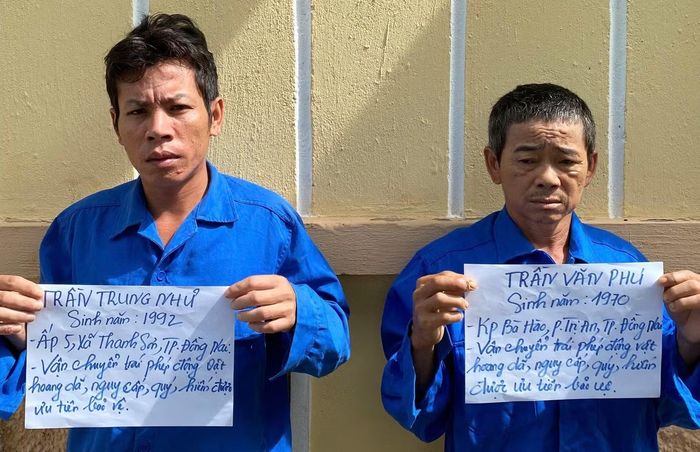 TRẦN TRUNG NHỦ
Sinh năm : 1992
- Ấp 5, Xã Thanh Sơn, TP. Đồng Nai.
- Vận chuyển trái phép động vật
hoang dã, nguy cấp, quý, hiếm được
ưu tiên bảo vệ.
TRẦN VĂN PHÚ
Sinh năm : 1970
- Kp Bà Hào, P. Trị An, TP. Đồng Nai
- Vận chuyển trái phép động vật
hoang dã, nguy cấp, quý, hiếm
được ưu tiên bảo vệ.